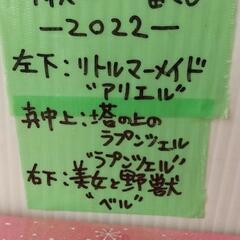 —2022—
左下：リトルマーメイド
"アリエル"
真中上：塔の上の
ラプンツェル
"ラプンツェル"
右下：美女と野獣
"ベル"